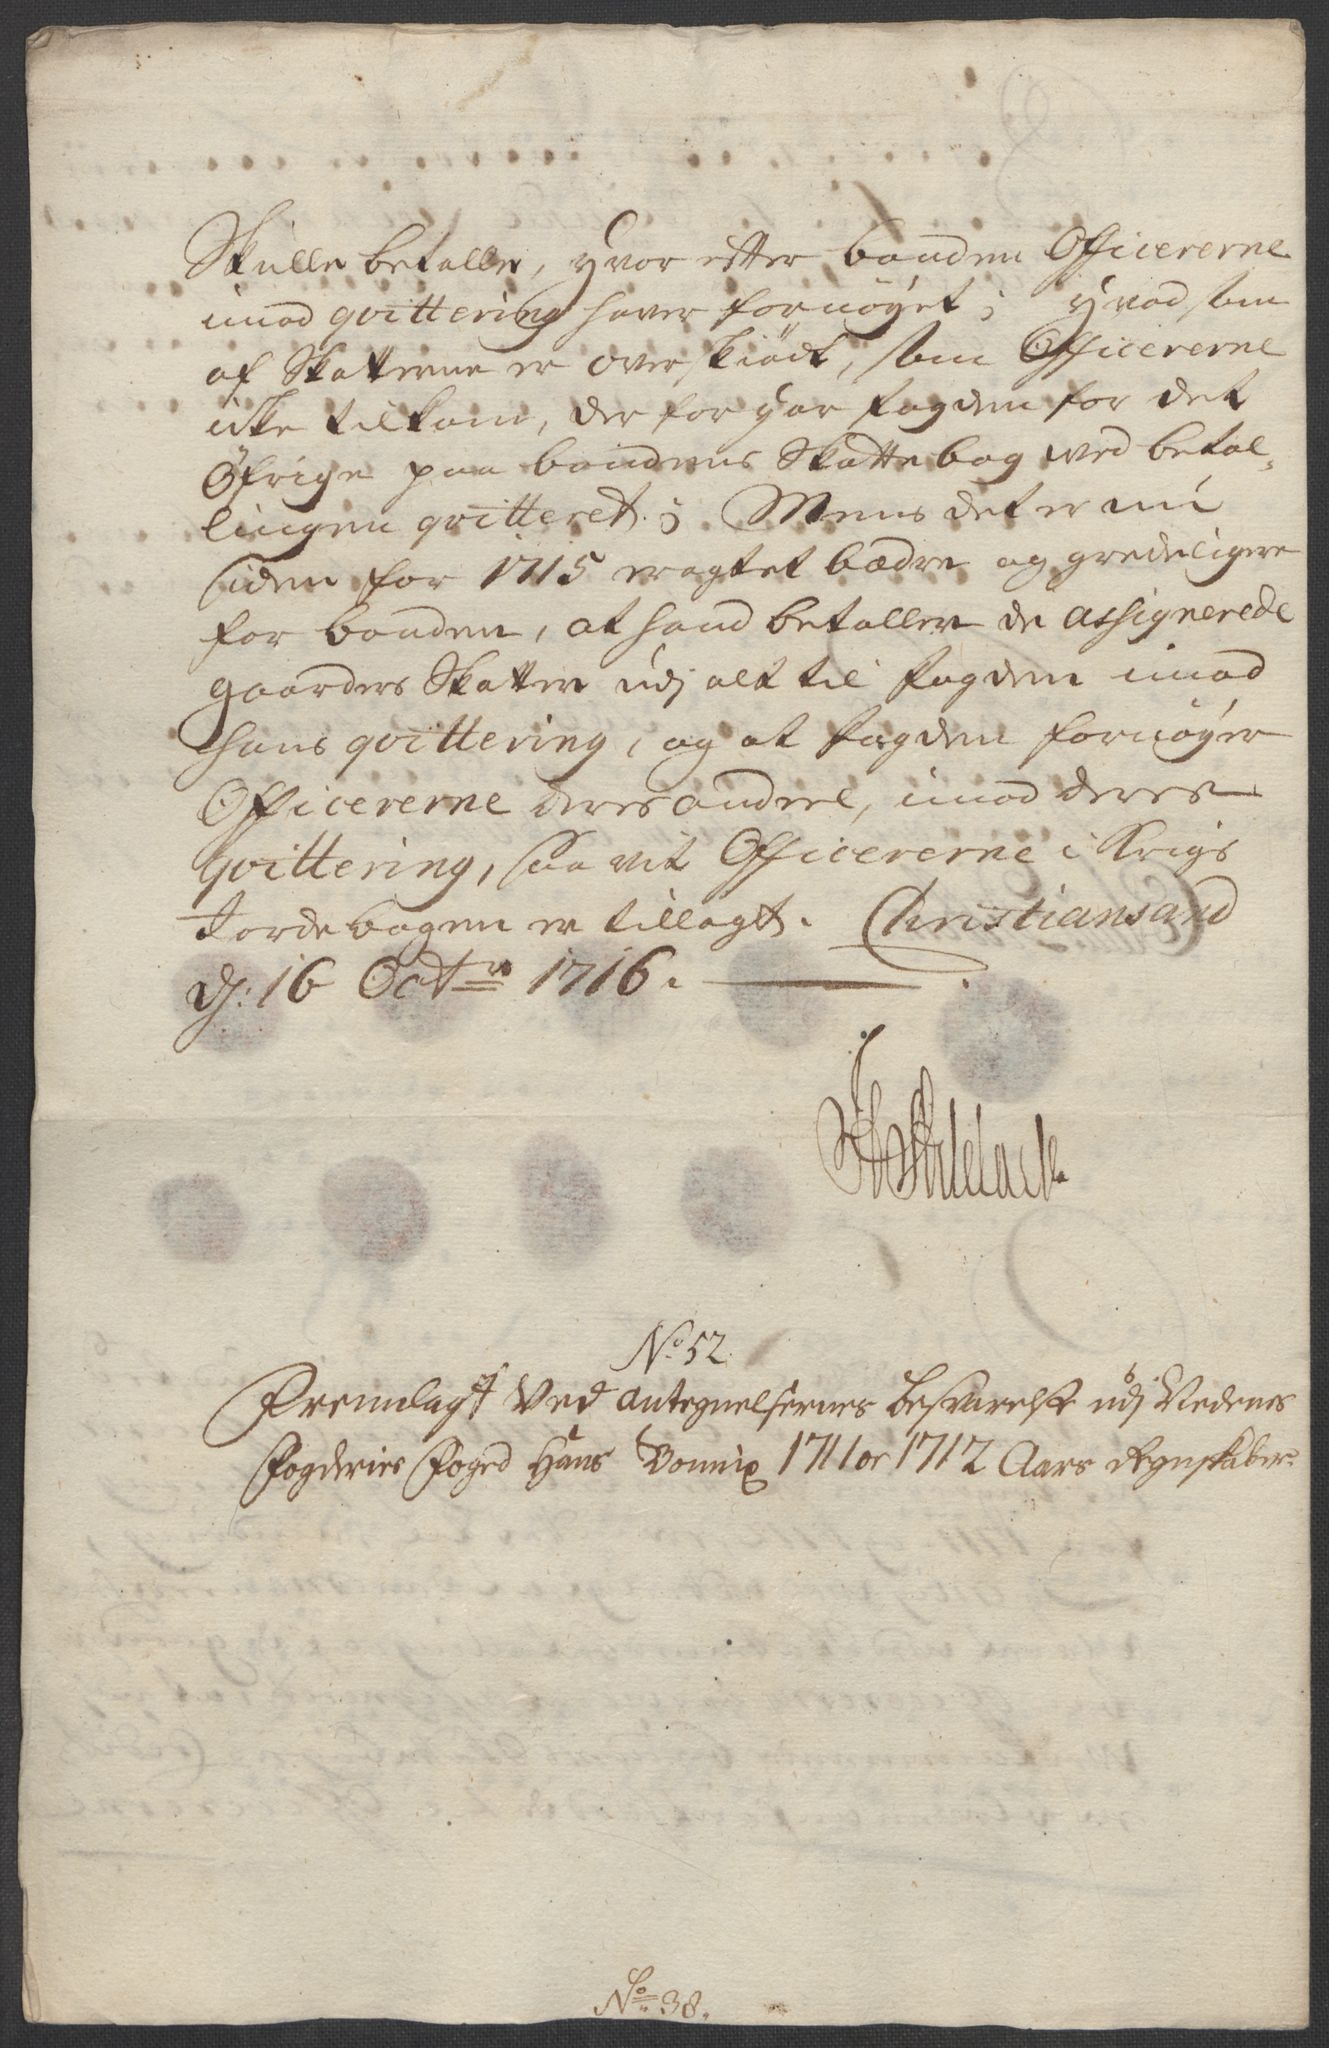 Skulle betalle, hvor efter bonden Officererne
imod qvittering haver fornøyet; hvad som
af Skatterne er overskiødt, som Officererne
icke tilkom, der for har fogden for det
Øfrige paa bondens Skattebog ved betal-
lingen qvitteret; Mens det er nu
siden for 1715 eragtet bædre og gredeligere
for bonden, at hand betaller de assignerede
gaarders Skatter udj alt til fogden imod
hans qvittering, og at fogden fornøyer
Officererne deres andeel, imod deres
qvittering, saa vit Officererne i Krigs
Jordebogen er tillagt. Christiansand
dj: 16 Octr 1716.
No 52.
Fremlagt Ved antegnelsernes besvarelse udj Nedenes
Fogderies Foged Hans Bonnix 1711 oc 1712 Aars Regnskaber.
No 38.